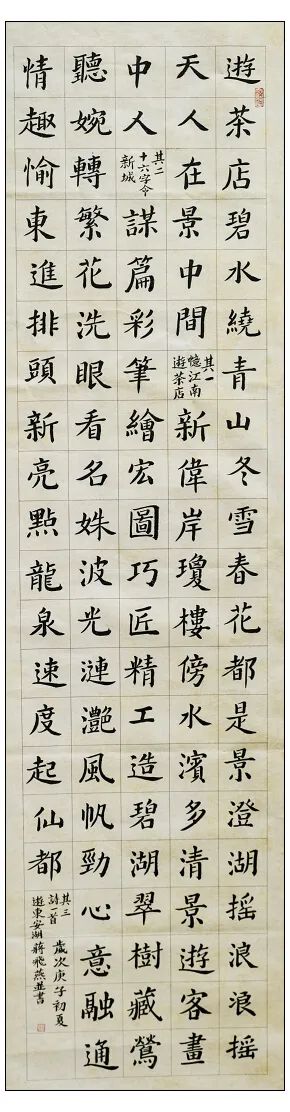 遊茶店碧水繞青山冬雪春花都是景澄湖搖浪浪搖
天人在景中間
其一
憶江南
遊茶店
新偉岸瓊樓傍水濱多清景遊客畫
中人
其二
十六字令
新城
謀篇彩筆繪宏圖巧匠精工造碧湖翠樹藏鶯
聽婉轉繁花洗眼看名姝波光漣灩風帆勁心意融通
情趣愉東進排頭新亮點龍泉速度起仙都
其三
詩一首
遊東安湖
歲次庚子初夏
蔣飛燕並書